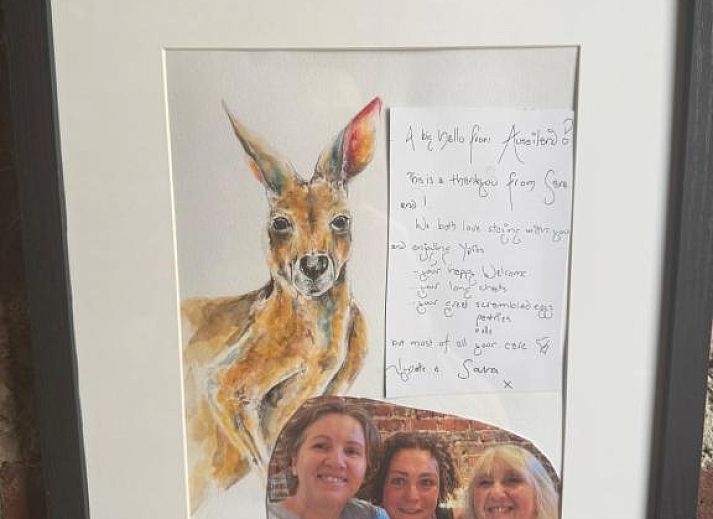 A big hello from
This is a thankyou from Sara
and I.
We both love staying with you
and enjoying Ypres
- your happy Welcome
- your long chats
- your great scrambled eggs
pastries
but most of all your care
& Sara
x